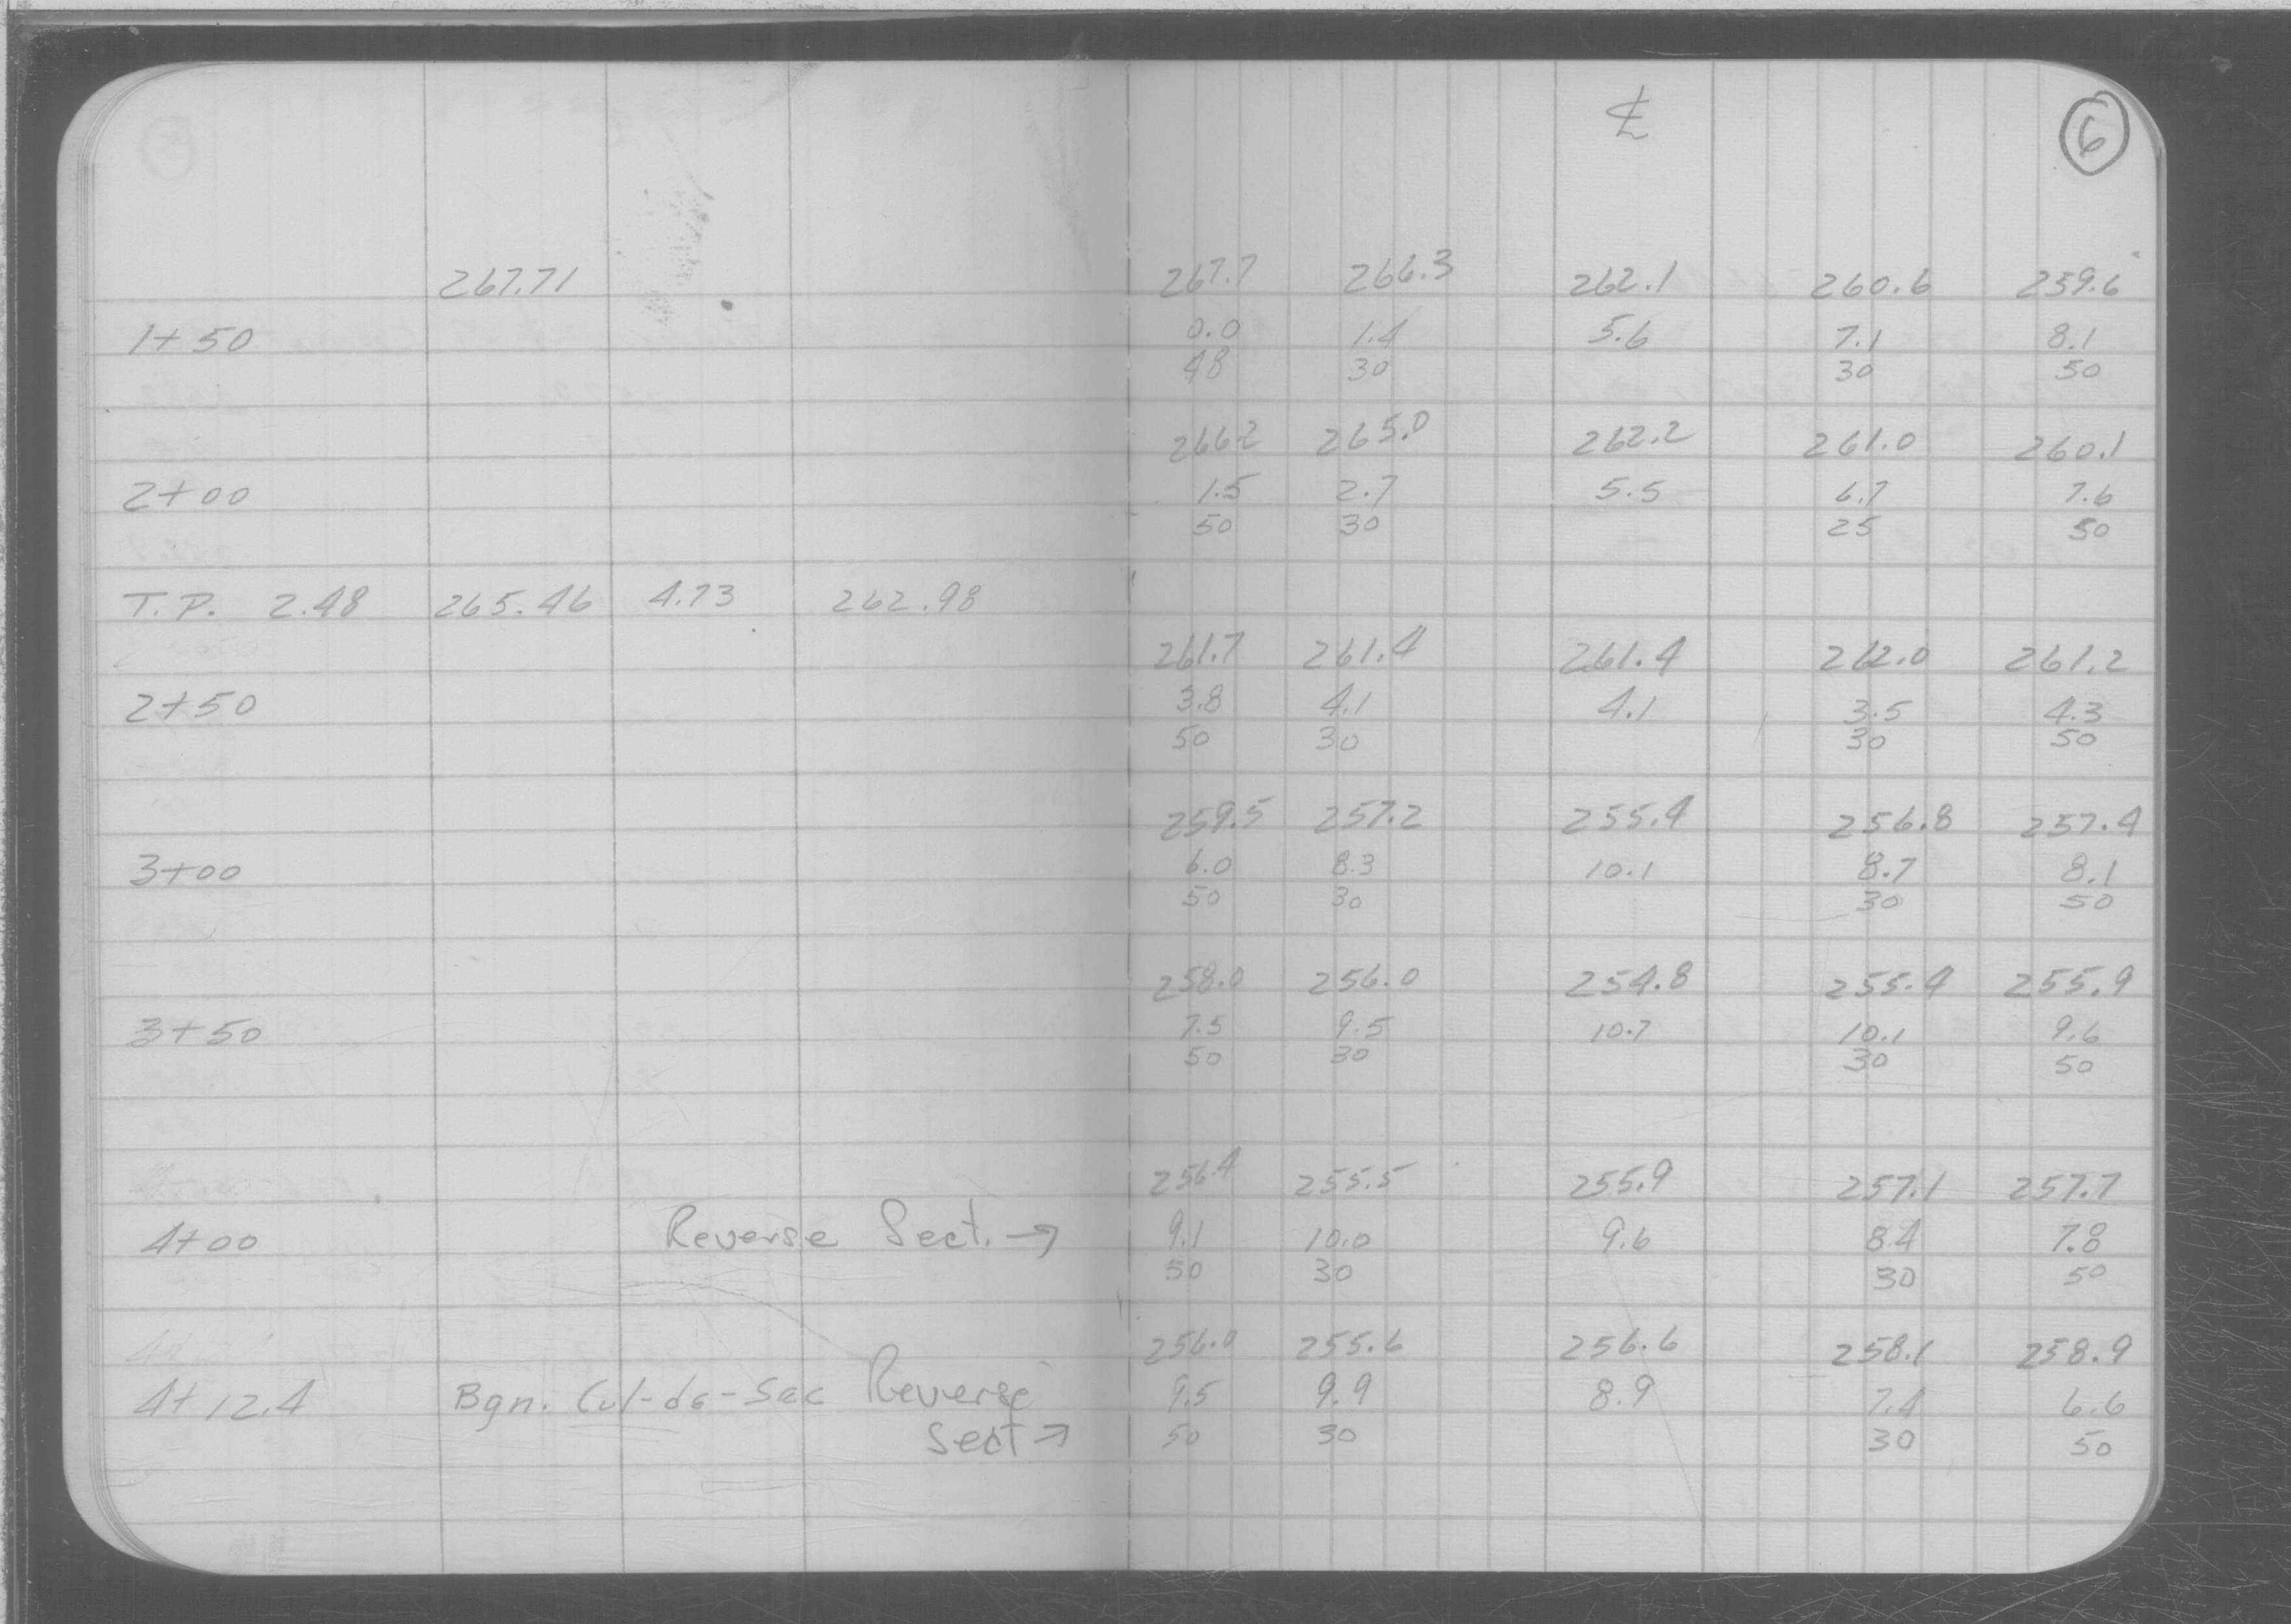 ℄ 6
267.71 267.7 266.3 262.1 260.6 259.6
1+50 0.0 1.4 5.6 7.1 8.1
48 30 30 50
266.2 265.0 262.2 261.0 260.1
2+00 1.5 2.7 5.5 6.7 7.6
50 30 25 50
T.P. 2.48 265.46 4.73 262.98
261.7 261.4 261.4 262.0 261.2
2+50 3.8 4.1 4.1 3.5 4.3
50 30 30 50
259.5 257.2 255.4 256.8 257.4
3+00 6.0 8.3 10.1 8.7 8.1
50 30 30 50
258.0 256.0 254.8 255.4 255.9
3+50 7.5 9.5 10.7 10.1 9.6
50 30 30 50
256.4 255.5 255.9 257.1 257.7
4+00 Reverse Sect. → 9.1 10.0 9.6 8.4 7.8
50 30 30 50
256.0 255.6 256.6 258.1 258.9
4+12.4 Bgn. Cul-de-Sac Reverse 9.5 9.9 8.9 7.4 6.6
Sect → 50 30 30 50